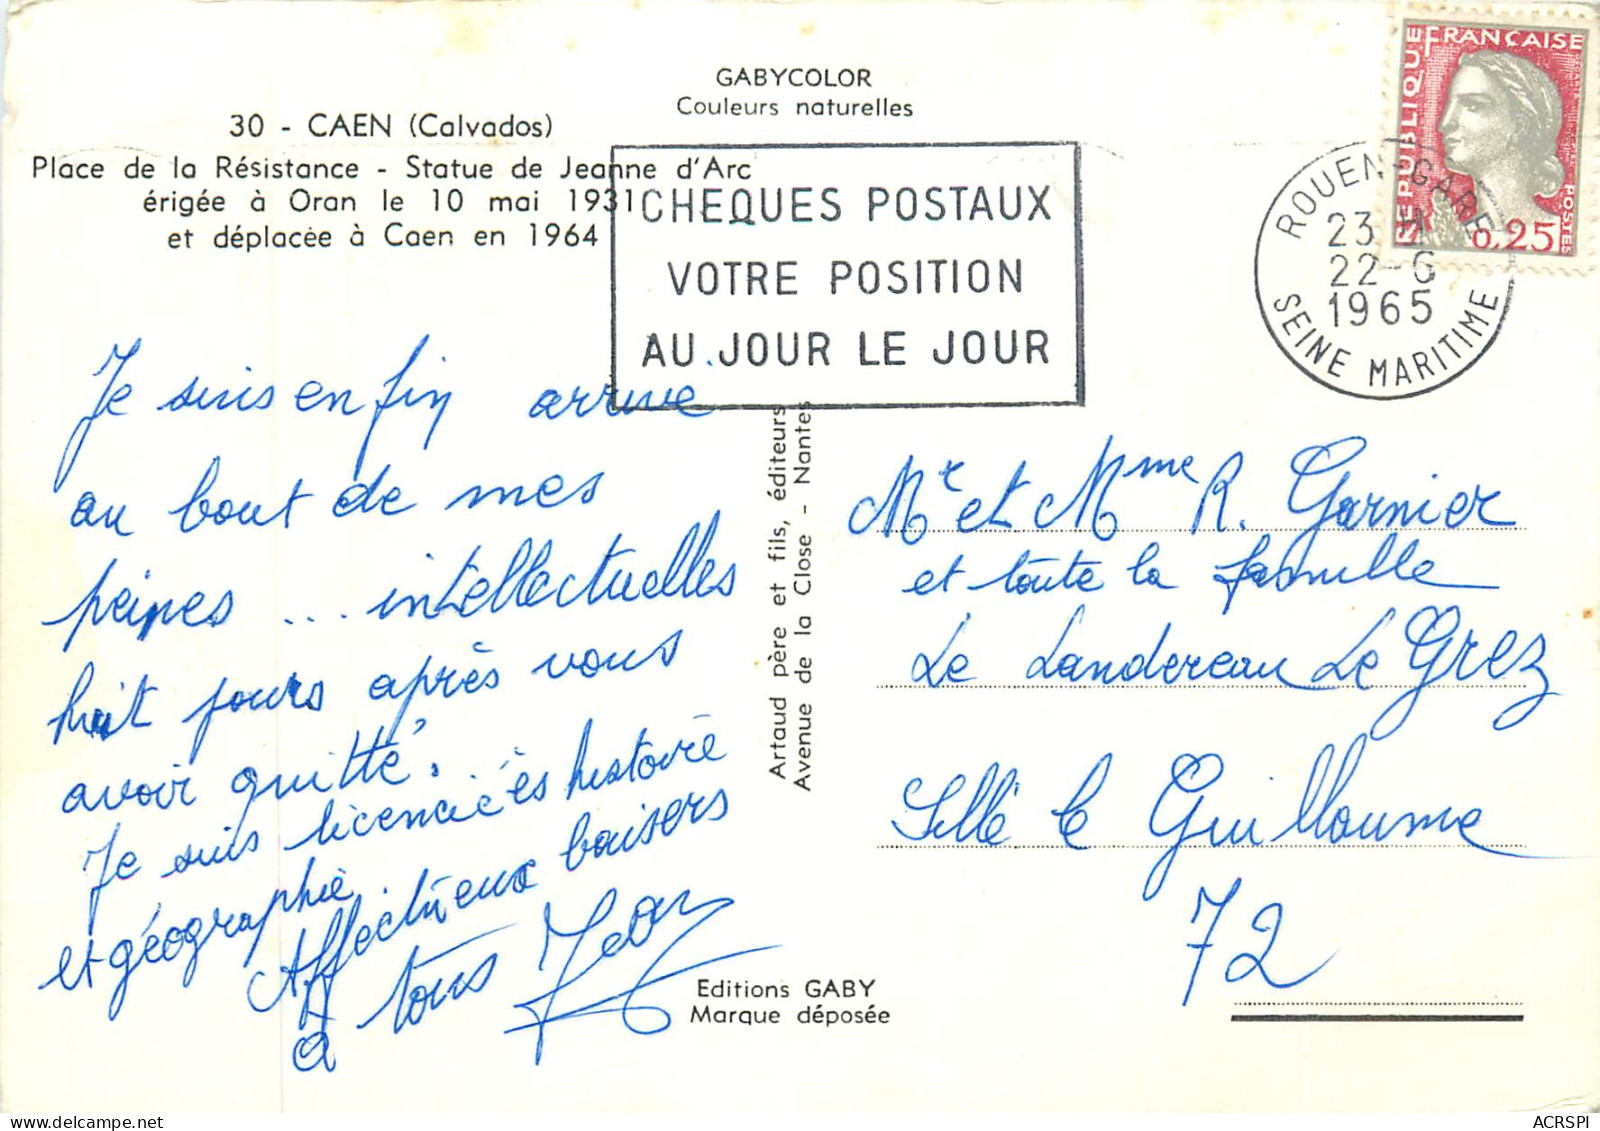 GABYCOLOR
Couleurs naturelles
30 - CAEN (Calvados)
Place de la Résistance - Statue de Jeanne d'Arc
érigée à Oran le 10 mai 1931
et déplacée à Caen en 1964
CHEQUES POSTAUX
VOTRE POSITION
AU JOUR LE JOUR
REPUBLIQUE FRANÇAISE
POSTES
0,25
ROUEN-GARE
23 H
22-6
1965
SEINE MARITIME
Je suis en fin arrive
au bout de mes
peines ... intellectuelles
huit jours après vous
avoir quitté.
Je suis licencié ès histoire
et géographie
Affectueux baisers
à tous Jean
Artaud père et fils, éditeurs
Avenue de la Close - Nantes
Mr et Mme R. Garnier
et toute la famille
Le Landereau Le Grez
Sillé le Guillaume
72
Editions GABY
Marque déposée
ACRSPI